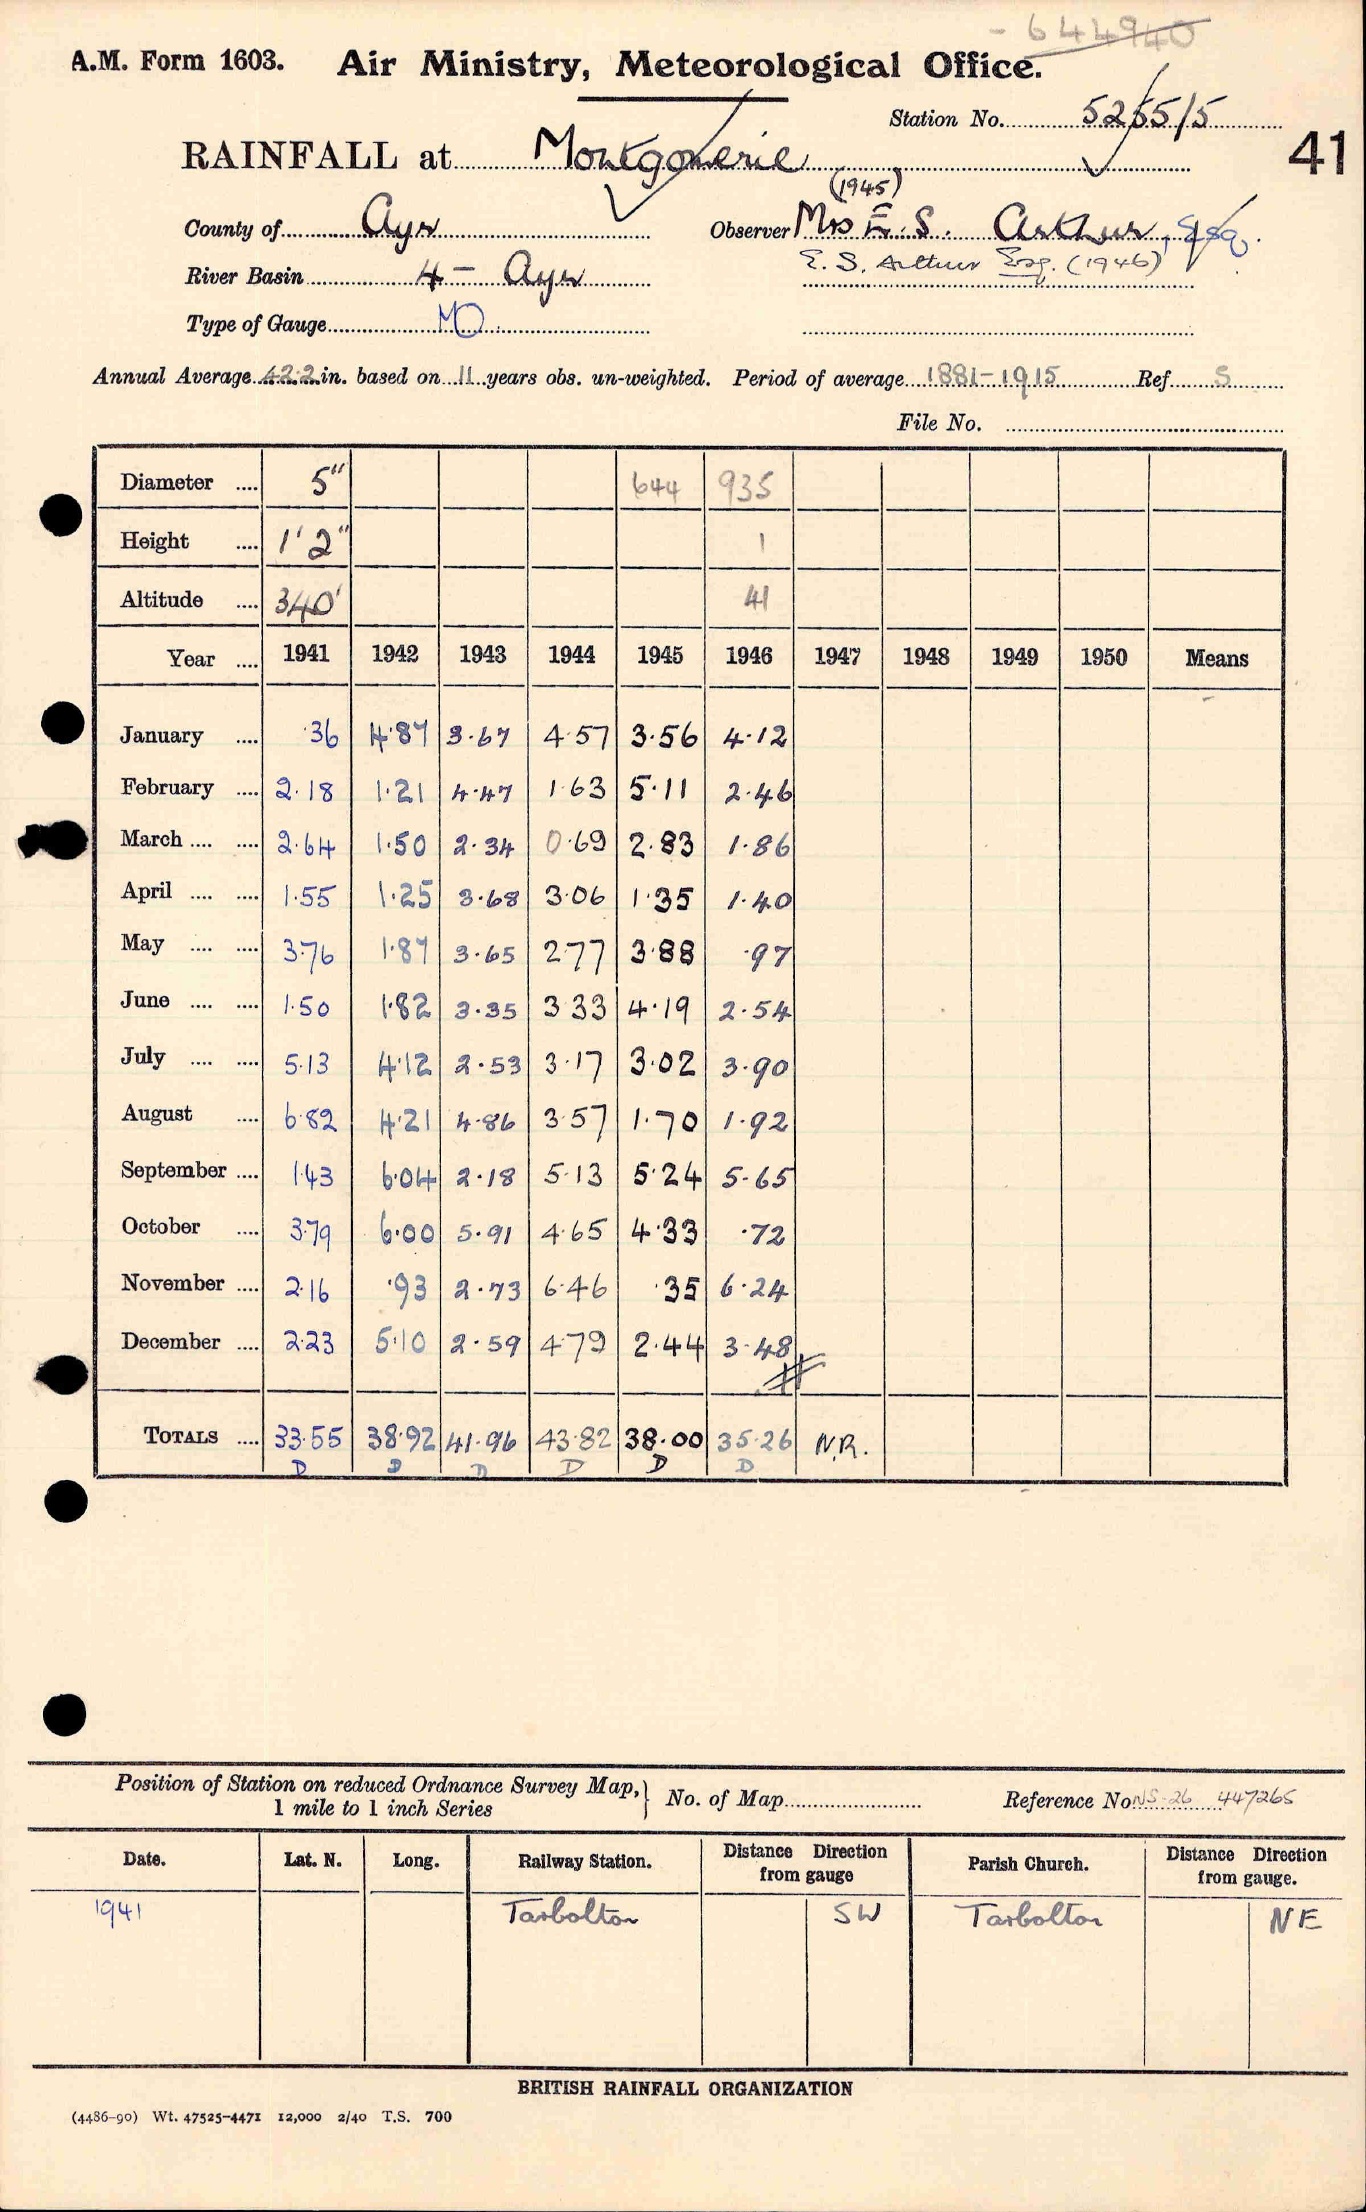 - 644940
A.M. Form 1603. Air Ministry, Meteorological Office.
Station No. 5255/5
RAINFALL at Montgomerie
41
(1945)
County of Ayr Observer Mrs E. S. Arthur, Esq.
River Basin 4 - Ayr E. S. Arthur Esq. (1946)
Type of Gauge MO
Annual Average 42.2 in. based on 11 years obs. un-weighted. Period of average 1881-1915 Ref. S
File No.
Diameter .... 5" 644 935
Height .... 1' 2" 1
Altitude .... 340' 41
Year .... 1941 1942 1943 1944 1945 1946 1947 1948 1949 1950 Means
January .... ·36 4·87 3·67 4·57 3·56 4·12
February .... 2·18 1·21 4·47 1·63 5·11 2·46
March .... .... 2·64 1·50 2·34 0·69 2·83 1·86
April .... .... 1·55 1·25 3·68 3·06 1·35 1·40
May .... .... 3·76 1·87 3·65 2·77 3·88 ·97
June .... .... 1·50 1·82 3·35 3·33 4·19 2·54
July .... .... 5·13 4·12 2·53 3·17 3·02 3·90
August .... 6·82 4·21 4·86 3·57 1·70 1·92
September .... 1·43 6·04 2·18 5·13 5·24 5·65
October .... 3·79 6·00 5·91 4·65 4·33 ·72
November .... 2·16 ·93 2·73 6·46 ·35 6·24
December .... 2·23 5·10 2·59 4·79 2·44 3·48
TOTALS .... 33·55 38·92 41·96 43·82 38·00 35·26 N.R.
D D D D D D
Position of Station on reduced Ordnance Survey Map, 1 mile to 1 inch Series } No. of Map Reference No. NS 26 447265
Date. Lat. N. Long. Railway Station. Distance Direction from gauge Parish Church. Distance Direction from gauge.
1941 Tarbolton SW Tarbolton NE
BRITISH RAINFALL ORGANIZATION
(4486-90) Wt. 47525-4471 12,000 2/40 T.S. 700